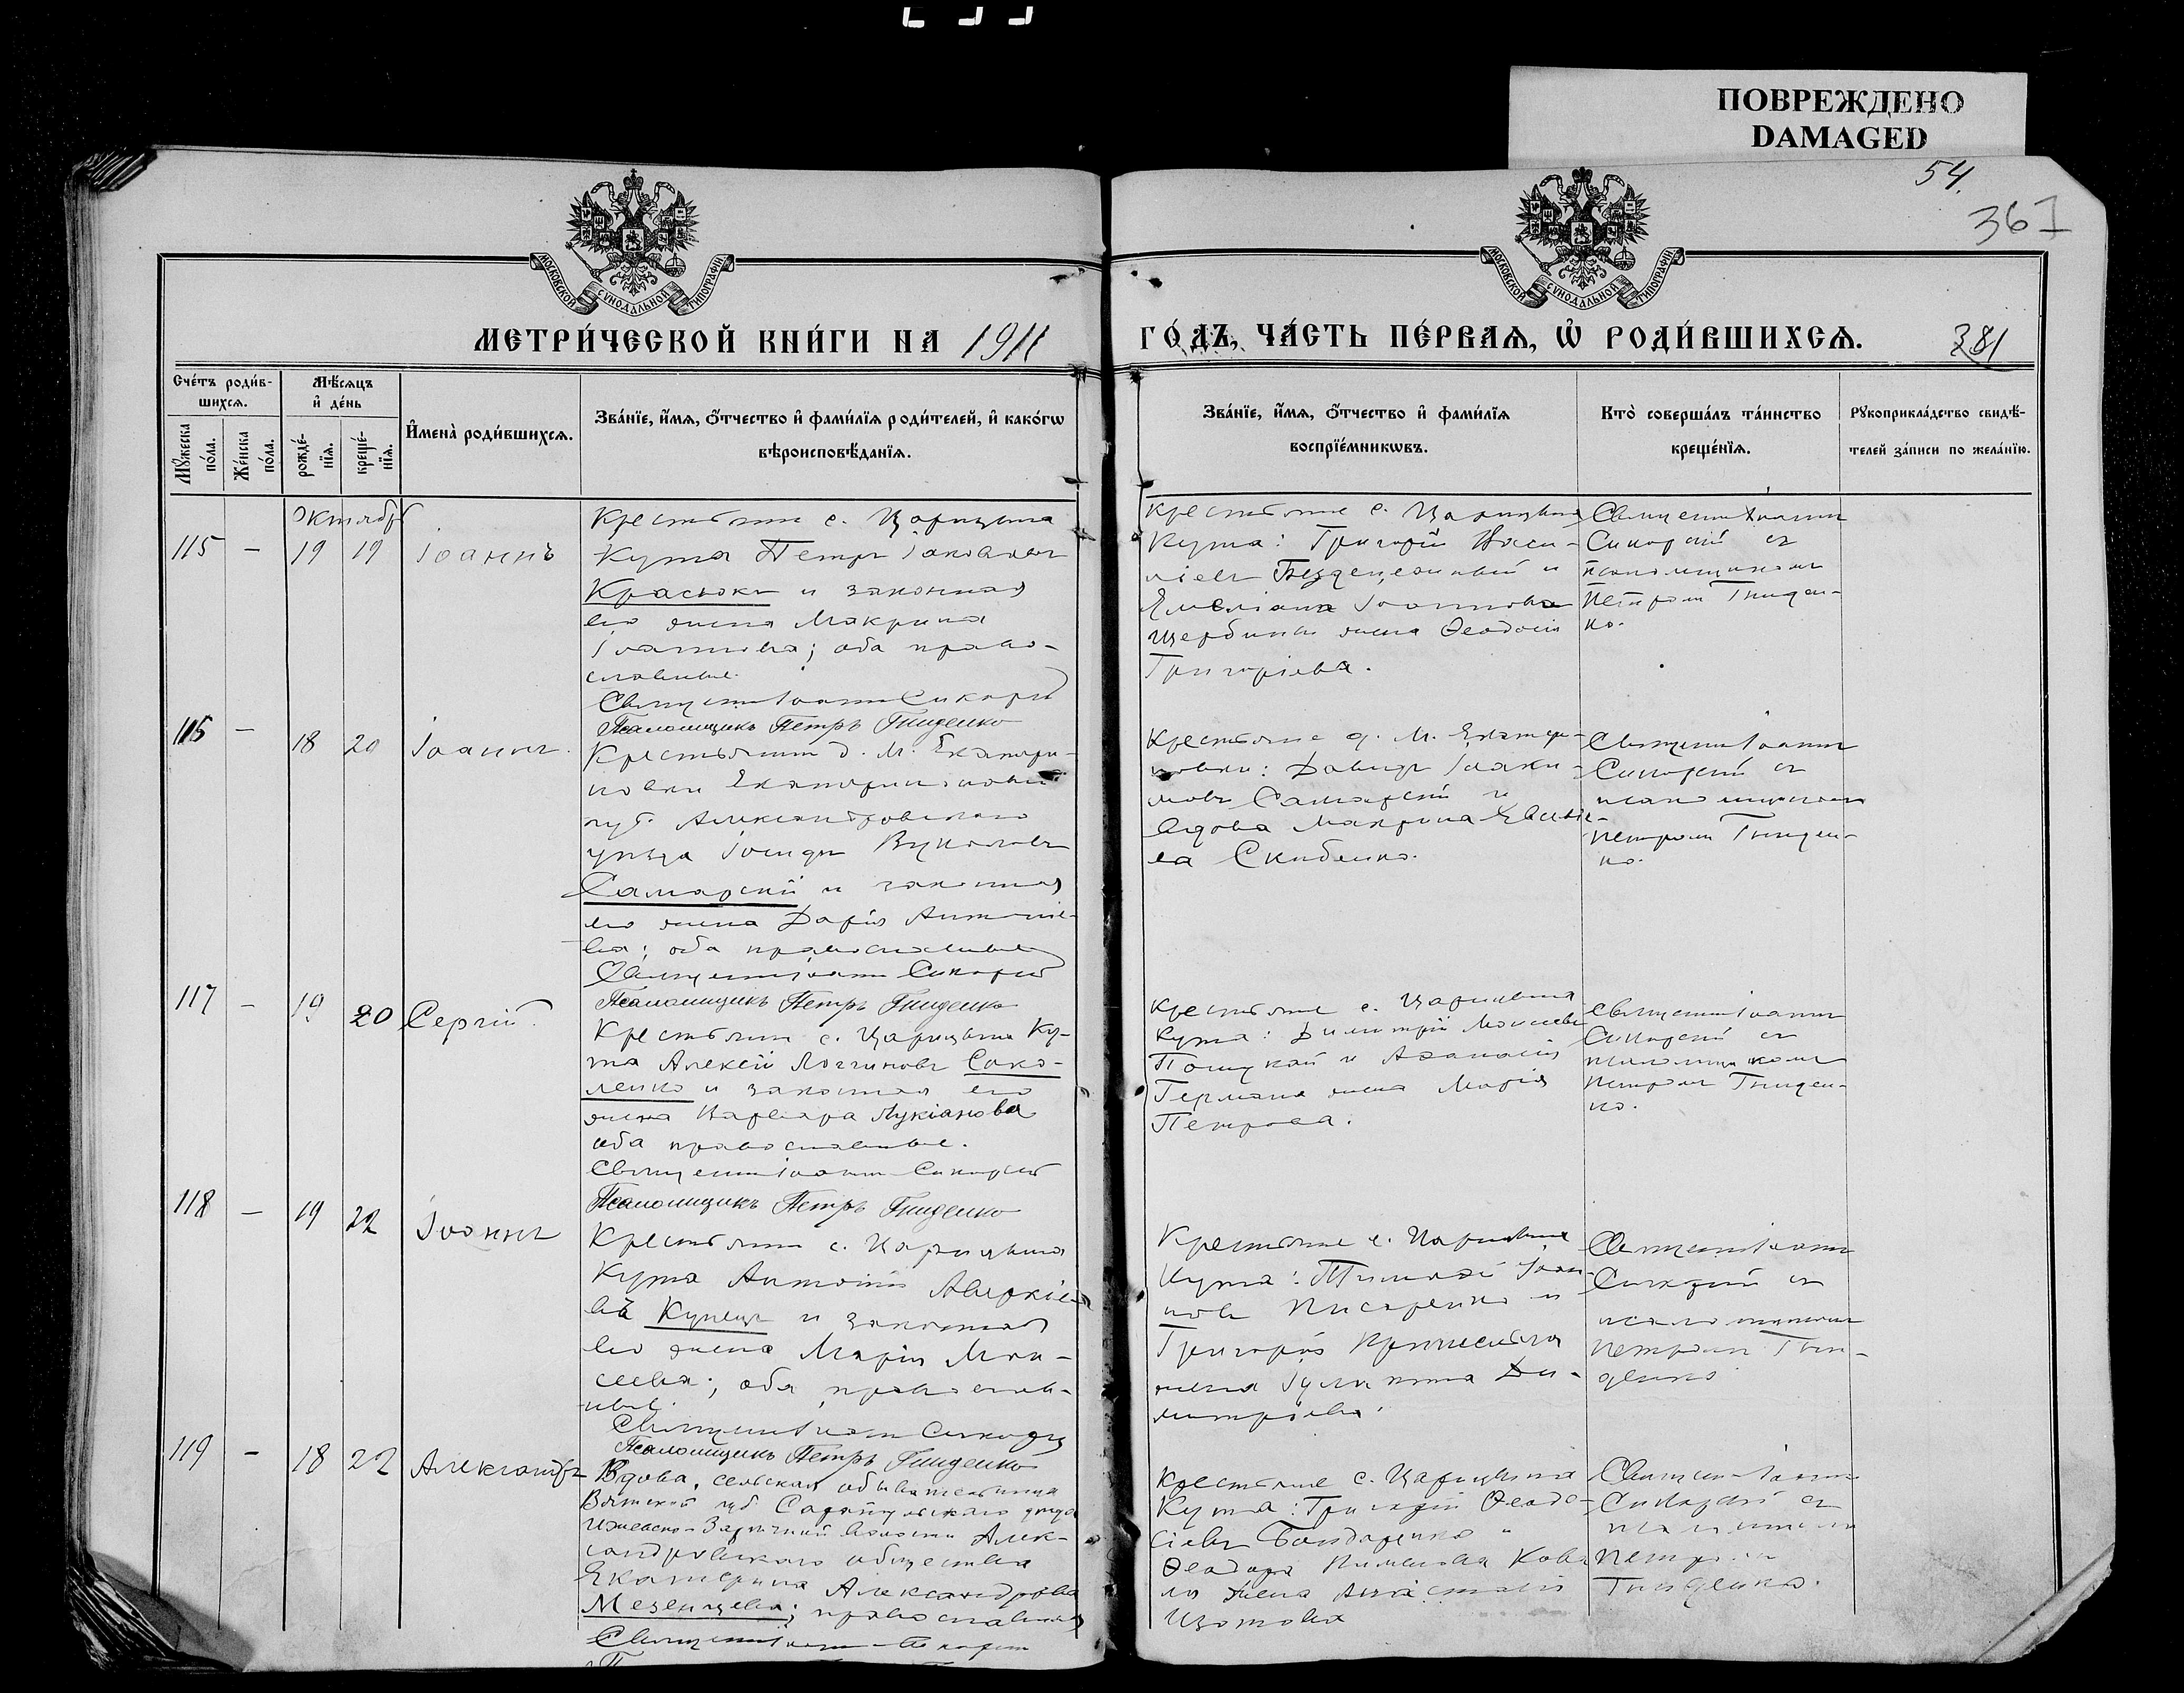 ПОВРЕЖДЕНО
DAMAGED
54.
361
МОСКОВСКОЙ СѴНОДАЛЬНОЙ ТИПОГРАФІИ
МОСКОВСКОЙ СѴНОДАЛЬНОЙ ТИПОГРАФІИ
МЕТРИ́ЧЕСКОЙ КНИ́ГИ НА 1911
ГО́ДЪ, ЧА́СТЬ ПЕ́РВАѦ, Ѡ҆ РОДИ́ВШИХСѦ.
381
Сче́тъ роди́в-
шихсѧ.
Мꙋ́жеска по́ла.
Же́нска по́ла.
Мѣ́сѧцъ
и҆ де́нь
рожде́-
нїѧ.
креще́-
нїѧ.
И҆мена̀ роди́вшихсѧ.
Зва́нїе, и҆́мѧ, ѻ҆́тчество и҆ фами́лїѧ роди́телей, и҆ како́гѡ
вѣроисповѣ́данїѧ.
Зва́нїе, и҆́мѧ, ѻ҆́тчество и҆ фами́лїѧ
воспрїе́мникѡвъ.
Кто̀ соверша́лъ та́инство
креще́нїѧ.
Рꙋкоприкла́дство свидѣ́-
телей за́писи по жела́нїю.
Октябрь
115 - 19 19 Іоаннъ
Крестьянин с. Царицына
Кута Петръ Іаковлевъ
Красюкъ и законная
его жена Макрина
Іоаннова; оба право-
славные.
Священник Іоанн Сикорскій
Псаломщикъ Петръ Гниденко
Крестьяне с. Царицына
Кута: Григорій Васи-
ліевъ и
Емеліана Іоаннова
Щербины жена Ѳеодосія
Григоріева.
Священник Іоанн
Сикорскій съ
псаломщиком
Петром Гниден-
ко.
115 - 18 20 Іоаннъ.
Крестьянин д. М. Екатери-
новки Екатеринослав.
губ. Александровскаго
уезда Іосифъ Вуколовъ
Самарскій и законная
его жена Дарія Антоніе-
ва; оба православные
Священник Іоанн Сикорскій
Псаломщикъ Петръ Гниденко
Крестьяне д. М. Екатери-
новки: Давидъ Іоаки-
мовъ Самарскій и
вдова Макрина Евсѣе-
ва Скибенко.
Священник Іоанн
Сикорскій съ
псаломщиком
Петром Гниден-
ко.
117 - 19 20 Сергій.
Крестьянин с. Царицына Ку-
та Алексій Логгиновъ Соко-
ленко и законная его
жена Варвара Лукіанова
оба православные.
Священник Іоанн Сикорскій
Псаломщикъ Петръ Гниденко
Крестьяне с. Царицына
Кута: Димитрій Моисеевъ
и Аѳанасія
Германа жена Марія
Петрова.
Священник Іоанн
Сикорскій съ
псаломщиком
Петром Гниден-
ко.
118 - 19 22 Іоаннъ
Крестьянин с. Царицына
Кута Антоній Аверкіе-
въ Купецъ и законная
его жена Марія Мои-
сеева; оба православ-
ные.
Священник Іоанн Сикорскій
Псаломщикъ Петръ Гниденко
Крестьяне с. Царицына
Кута: Тимоѳей Іоан-
новъ Писаренко и
Григорія
жена Іулитта Ди-
митріева.
Священник Іоанн
Сикорскій съ
псаломщиком
Петром Гни-
денко
119 - 18 22 Александръ
Вдова, сельская обывательница
Вятской губ Сарапульскаго уезда
Ижевско-Заречной волости Алек-
сандровскаго общества
Екатерина Александрова
Мезенцева; православная
Священник Іоанн Сикорскій
Крестьяне с. Царицына
Кута: Григорій Ѳеодо-
сіевъ Бондаренко и
Ѳеодора Пименова Кова-
ля жена Анастасія
Изотова
Священник Іоанн
Сикорскій съ
псаломщиком
Петром
Гниденко.